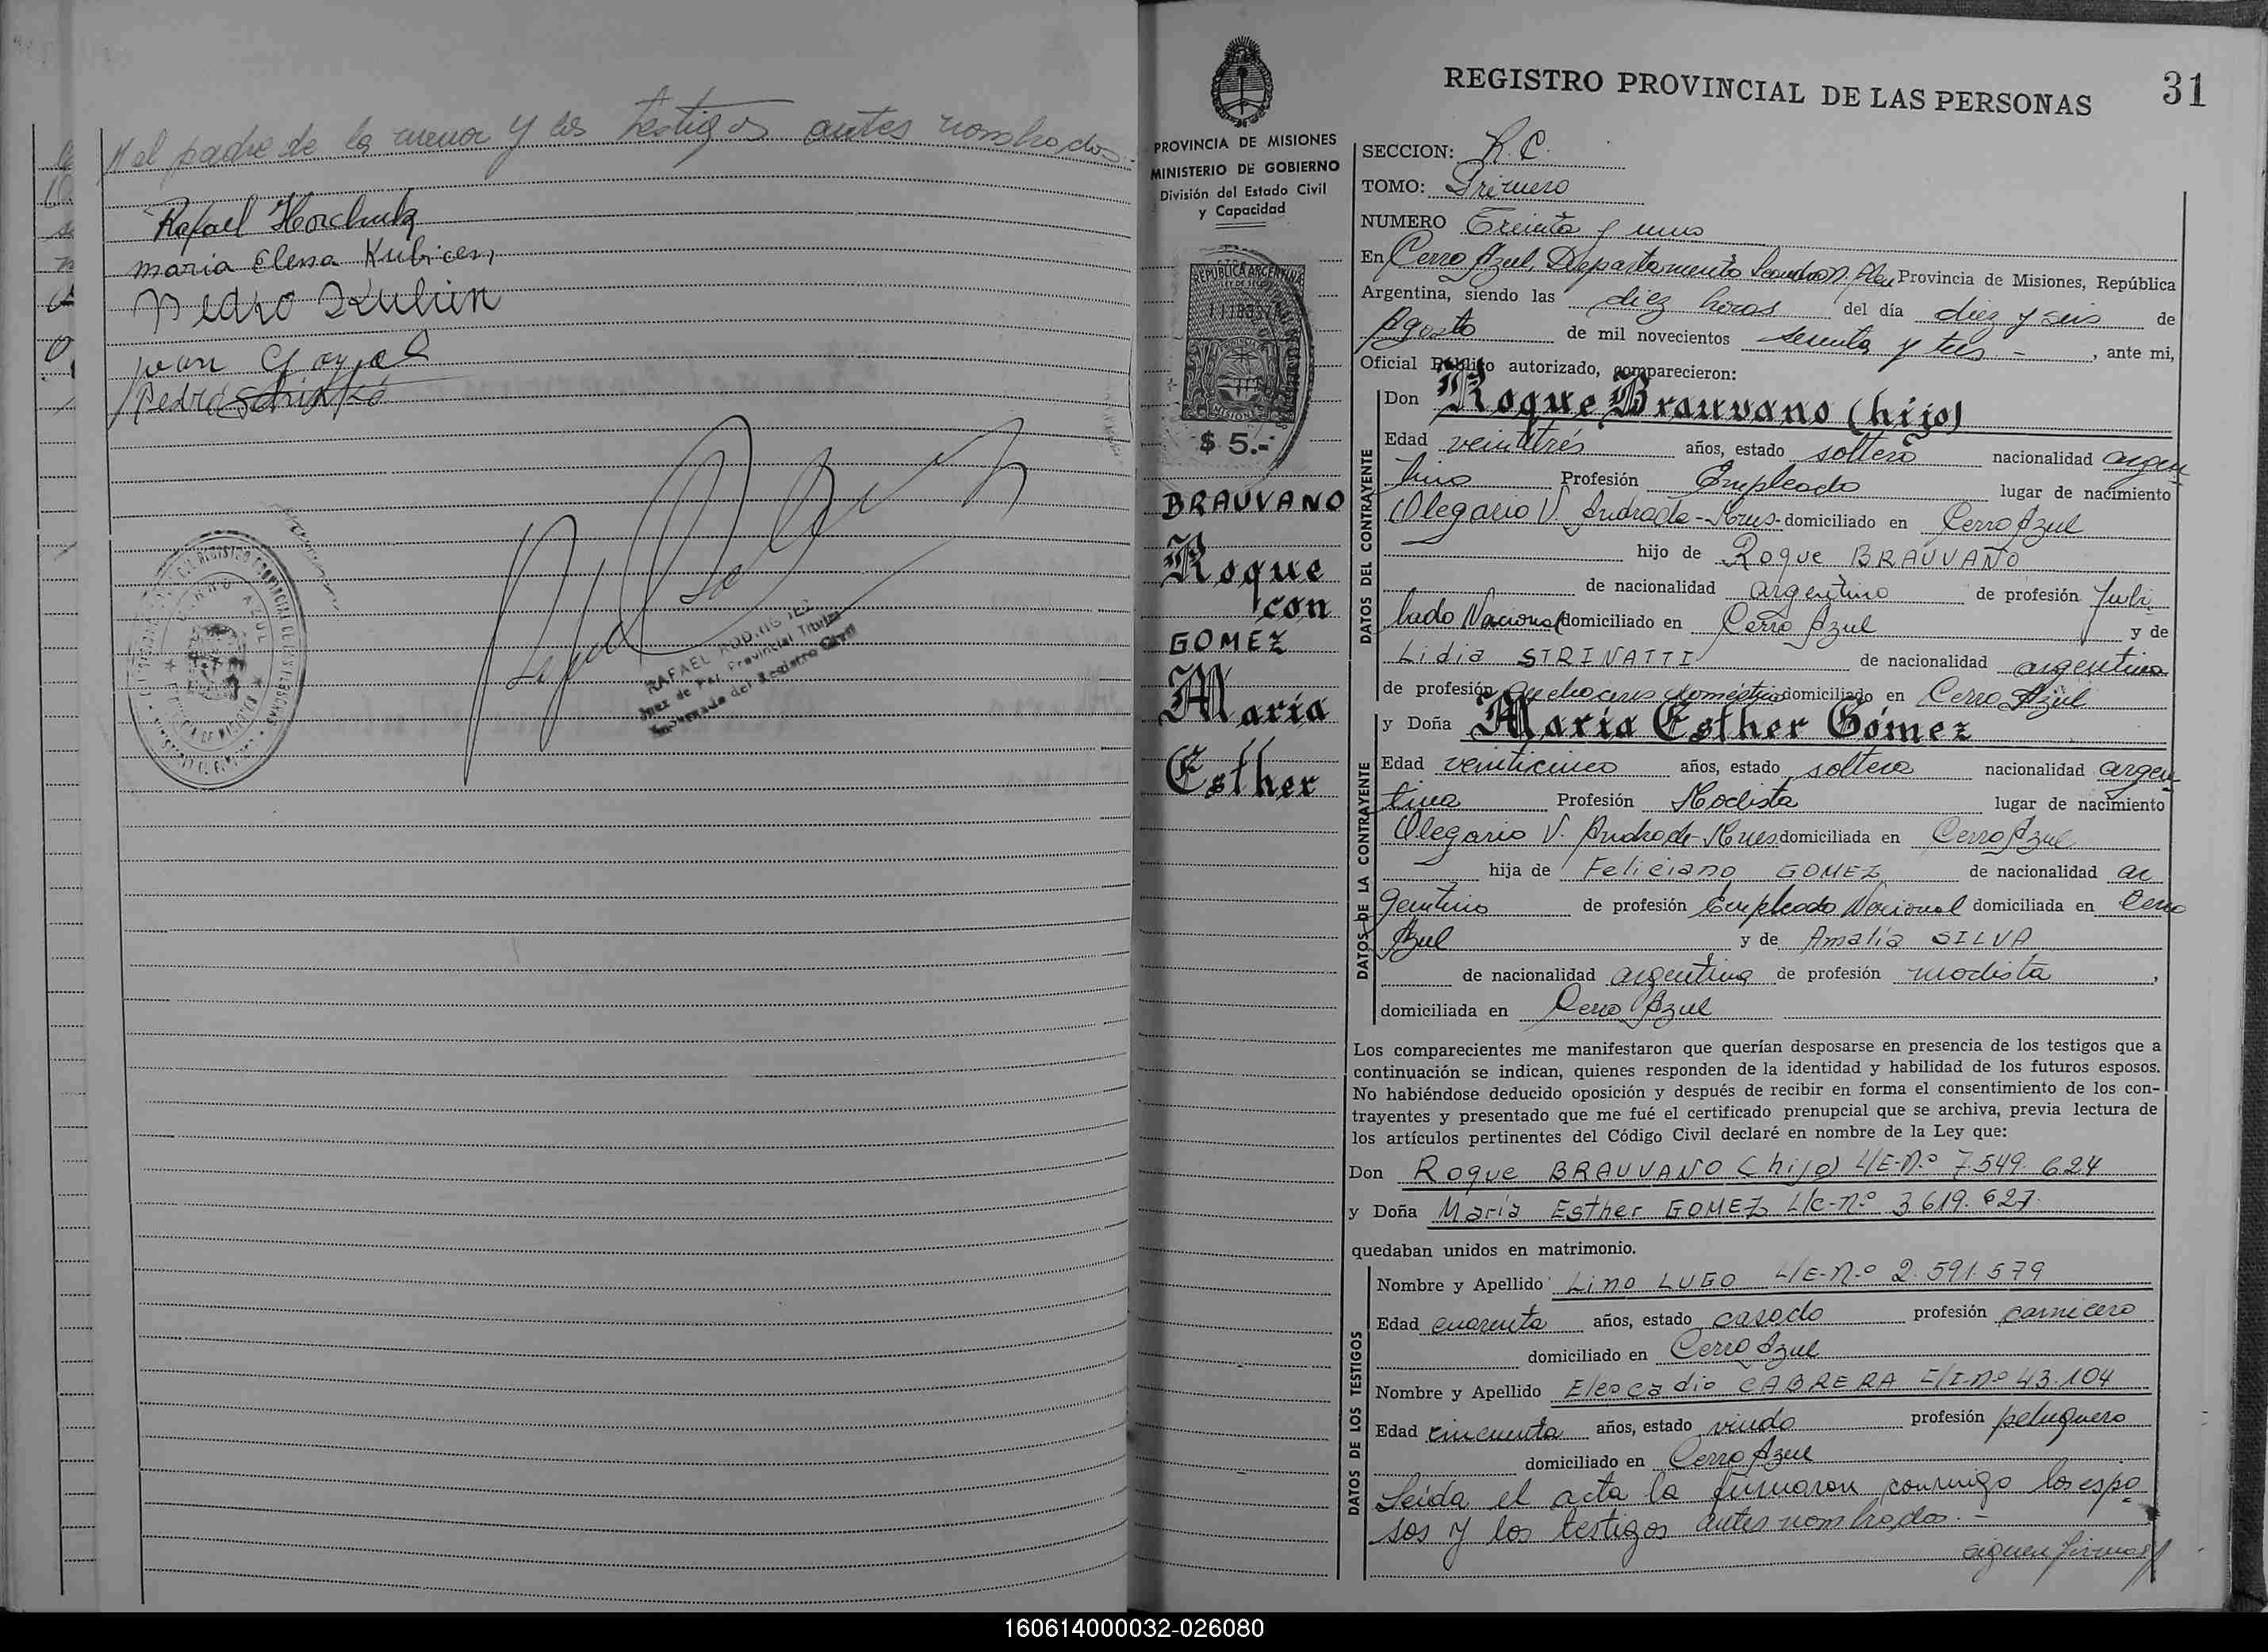 y el padre de la menor y los testigos antes nombrados.
Rafael
Maria Elena
Pedro
Juan
Pedro
RAFAEL RODRIGUEZ
Juez de Paz Provincial Titular
Encargado del Registro Civil
CERRO AZUL
REGISTRO PROVINCIAL DE LAS PERSONAS
31
PROVINCIA DE MISIONES
MINISTERIO DE GOBIERNO
División del Estado Civil
y Capacidad
REPUBLICA ARGENTINA
MISIONES
$ 5.-
BRAUVANO
Roque
con
GOMEZ
María
Esther
SECCION: R.C.
TOMO: Primero
NUMERO Treinta y uno
En Cerro Azul, Departamento Leandro N. Alem Provincia de Misiones, República
Argentina, siendo las diez horas del día diez y seis de
Agosto de mil novecientos sesenta y tres - , ante mi,
Oficial Público autorizado, comparecieron:
DATOS DEL CONTRAYENTE
Don Roque Brauvano (hijo)
Edad veintitrés años, estado soltero nacionalidad argen
tino Profesión Empleado lugar de nacimiento
Olegario V. Andrade - domiciliado en Cerro Azul
hijo de Roque BRAUVANO
de nacionalidad argentino de profesión Jubi
lado Nacional domiciliado en Cerro Azul y de
Lidia STRINATTI de nacionalidad argentina
de profesión quehaceres domésticos domiciliado en Cerro Azul
DATOS DE LA CONTRAYENTE
y Doña María Esther Gómez
Edad veinticinco años, estado soltera nacionalidad argen
tina Profesión Modista lugar de nacimiento
Olegario V. Andrade - domiciliada en Cerro Azul
hija de Feliciano GOMEZ de nacionalidad ar
gentino de profesión Empleado Nacional domiciliada en Cerro
Azul y de Amalia SILVA
de nacionalidad argentina de profesión modista ,
domiciliada en Cerro Azul
Los comparecientes me manifestaron que querían desposarse en presencia de los testigos que a
continuación se indican, quienes responden de la identidad y habilidad de los futuros esposos.
No habiéndose deducido oposición y después de recibir en forma el consentimiento de los con-
trayentes y presentado que me fué el certificado prenupcial que se archiva, previa lectura de
los artículos pertinentes del Código Civil declaré en nombre de la Ley que:
Don Roque BRAUVANO (hijo) L/E-n.º 7.549.624
y Doña María Esther GOMEZ L/C-n.º 3.619.627.
quedaban unidos en matrimonio.
DATOS DE LOS TESTIGOS
Nombre y Apellido Lino LUGO L/E-n.º 2.591.579
Edad cuarenta años, estado casado profesión carnicero
domiciliado en Cerro Azul
Nombre y Apellido Eleocadio CABRERA C/I-nº 43.104
Edad cincuenta años, estado viudo profesión peluquero
domiciliado en Cerro Azul
Leída el acta la firmaron conmigo los espo
sos y los testigos antes nombrados. -
siguen firmas//
160614000032-026080